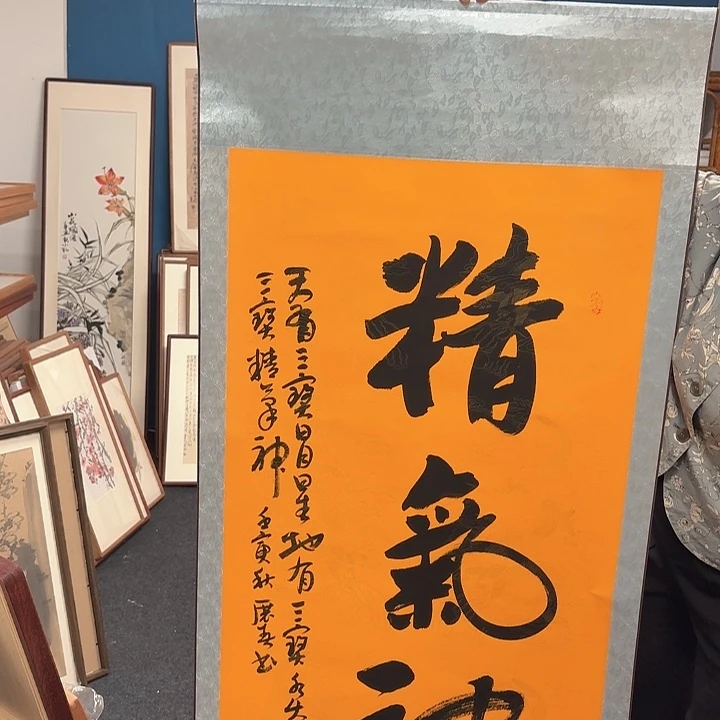 精氣神
天有三寶日月星地有三寶水火
三寶精氣神 壬寅秋